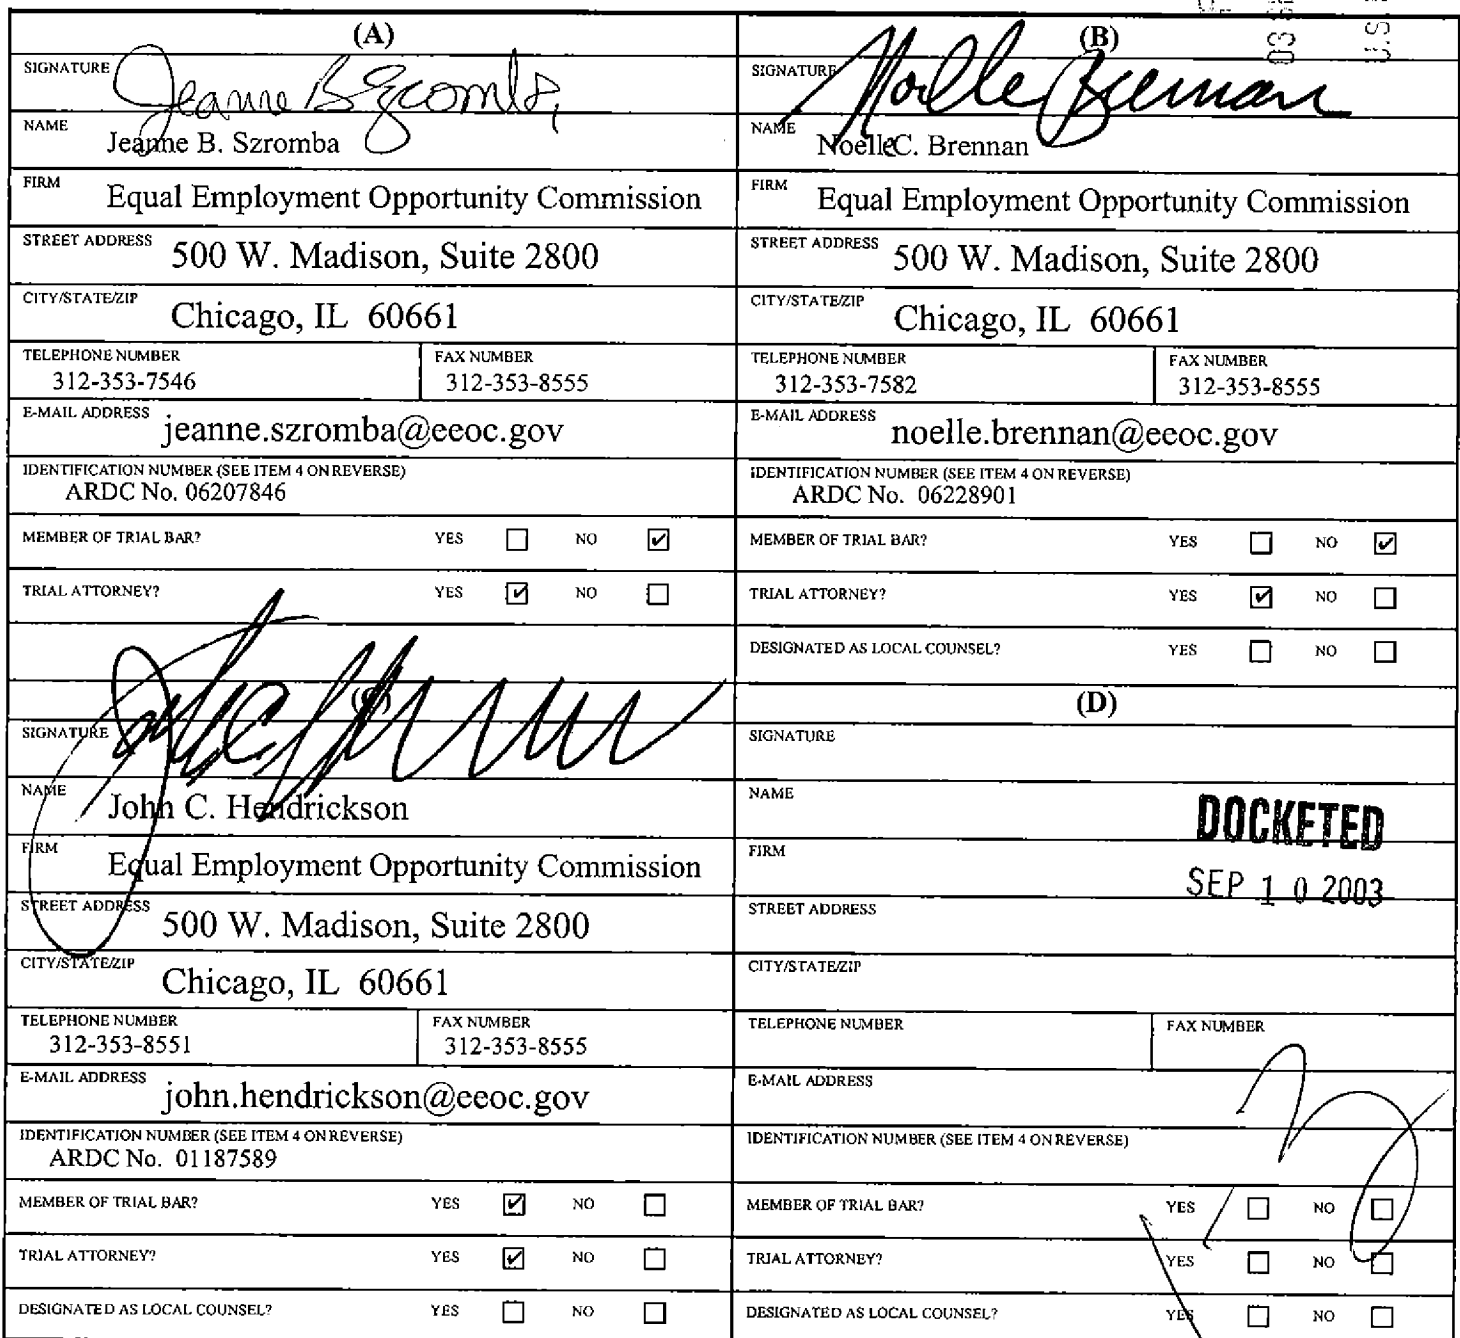 (A)
SIGNATURE Jeanne B Szromba,
NAME
Jeanne B. Szromba
FIRM Equal Employment Opportunity Commission
STREET ADDRESS 500 W. Madison, Suite 2800
CITY/STATE/ZIP Chicago, IL 60661
TELEPHONE NUMBER FAX NUMBER
312-353-7546 312-353-8555
E-MAIL ADDRESS jeanne.szromba@eeoc.gov
IDENTIFICATION NUMBER (SEE ITEM 4 ON REVERSE)
ARDC No. 06207846
MEMBER OF TRIAL BAR? YES ☐ NO ☑
TRIAL ATTORNEY? YES ☑ NO ☐
(B)
SIGNATURE Noelle Brennan
NAME
Noelle C. Brennan
FIRM Equal Employment Opportunity Commission
STREET ADDRESS 500 W. Madison, Suite 2800
CITY/STATE/ZIP Chicago, IL 60661
TELEPHONE NUMBER FAX NUMBER
312-353-7582 312-353-8555
E-MAIL ADDRESS noelle.brennan@eeoc.gov
IDENTIFICATION NUMBER (SEE ITEM 4 ON REVERSE)
ARDC No. 06228901
MEMBER OF TRIAL BAR? YES ☐ NO ☑
TRIAL ATTORNEY? YES ☑ NO ☐
DESIGNATED AS LOCAL COUNSEL? YES ☐ NO ☐
(C)
SIGNATURE
NAME John C. Hendrickson
FIRM Equal Employment Opportunity Commission
STREET ADDRESS 500 W. Madison, Suite 2800
CITY/STATE/ZIP Chicago, IL 60661
TELEPHONE NUMBER FAX NUMBER
312-353-8551 312-353-8555
E-MAIL ADDRESS john.hendrickson@eeoc.gov
IDENTIFICATION NUMBER (SEE ITEM 4 ON REVERSE)
ARDC No. 01187589
MEMBER OF TRIAL BAR? YES ☑ NO ☐
TRIAL ATTORNEY? YES ☑ NO ☐
DESIGNATED AS LOCAL COUNSEL? YES ☐ NO ☐
(D)
SIGNATURE
NAME
DOCKETED
FIRM
SEP 10 2003
STREET ADDRESS
CITY/STATE/ZIP
TELEPHONE NUMBER FAX NUMBER
E-MAIL ADDRESS
IDENTIFICATION NUMBER (SEE ITEM 4 ON REVERSE)
MEMBER OF TRIAL BAR? YES ☐ NO ☐
TRIAL ATTORNEY? YES ☐ NO ☐
DESIGNATED AS LOCAL COUNSEL? YES ☐ NO ☐